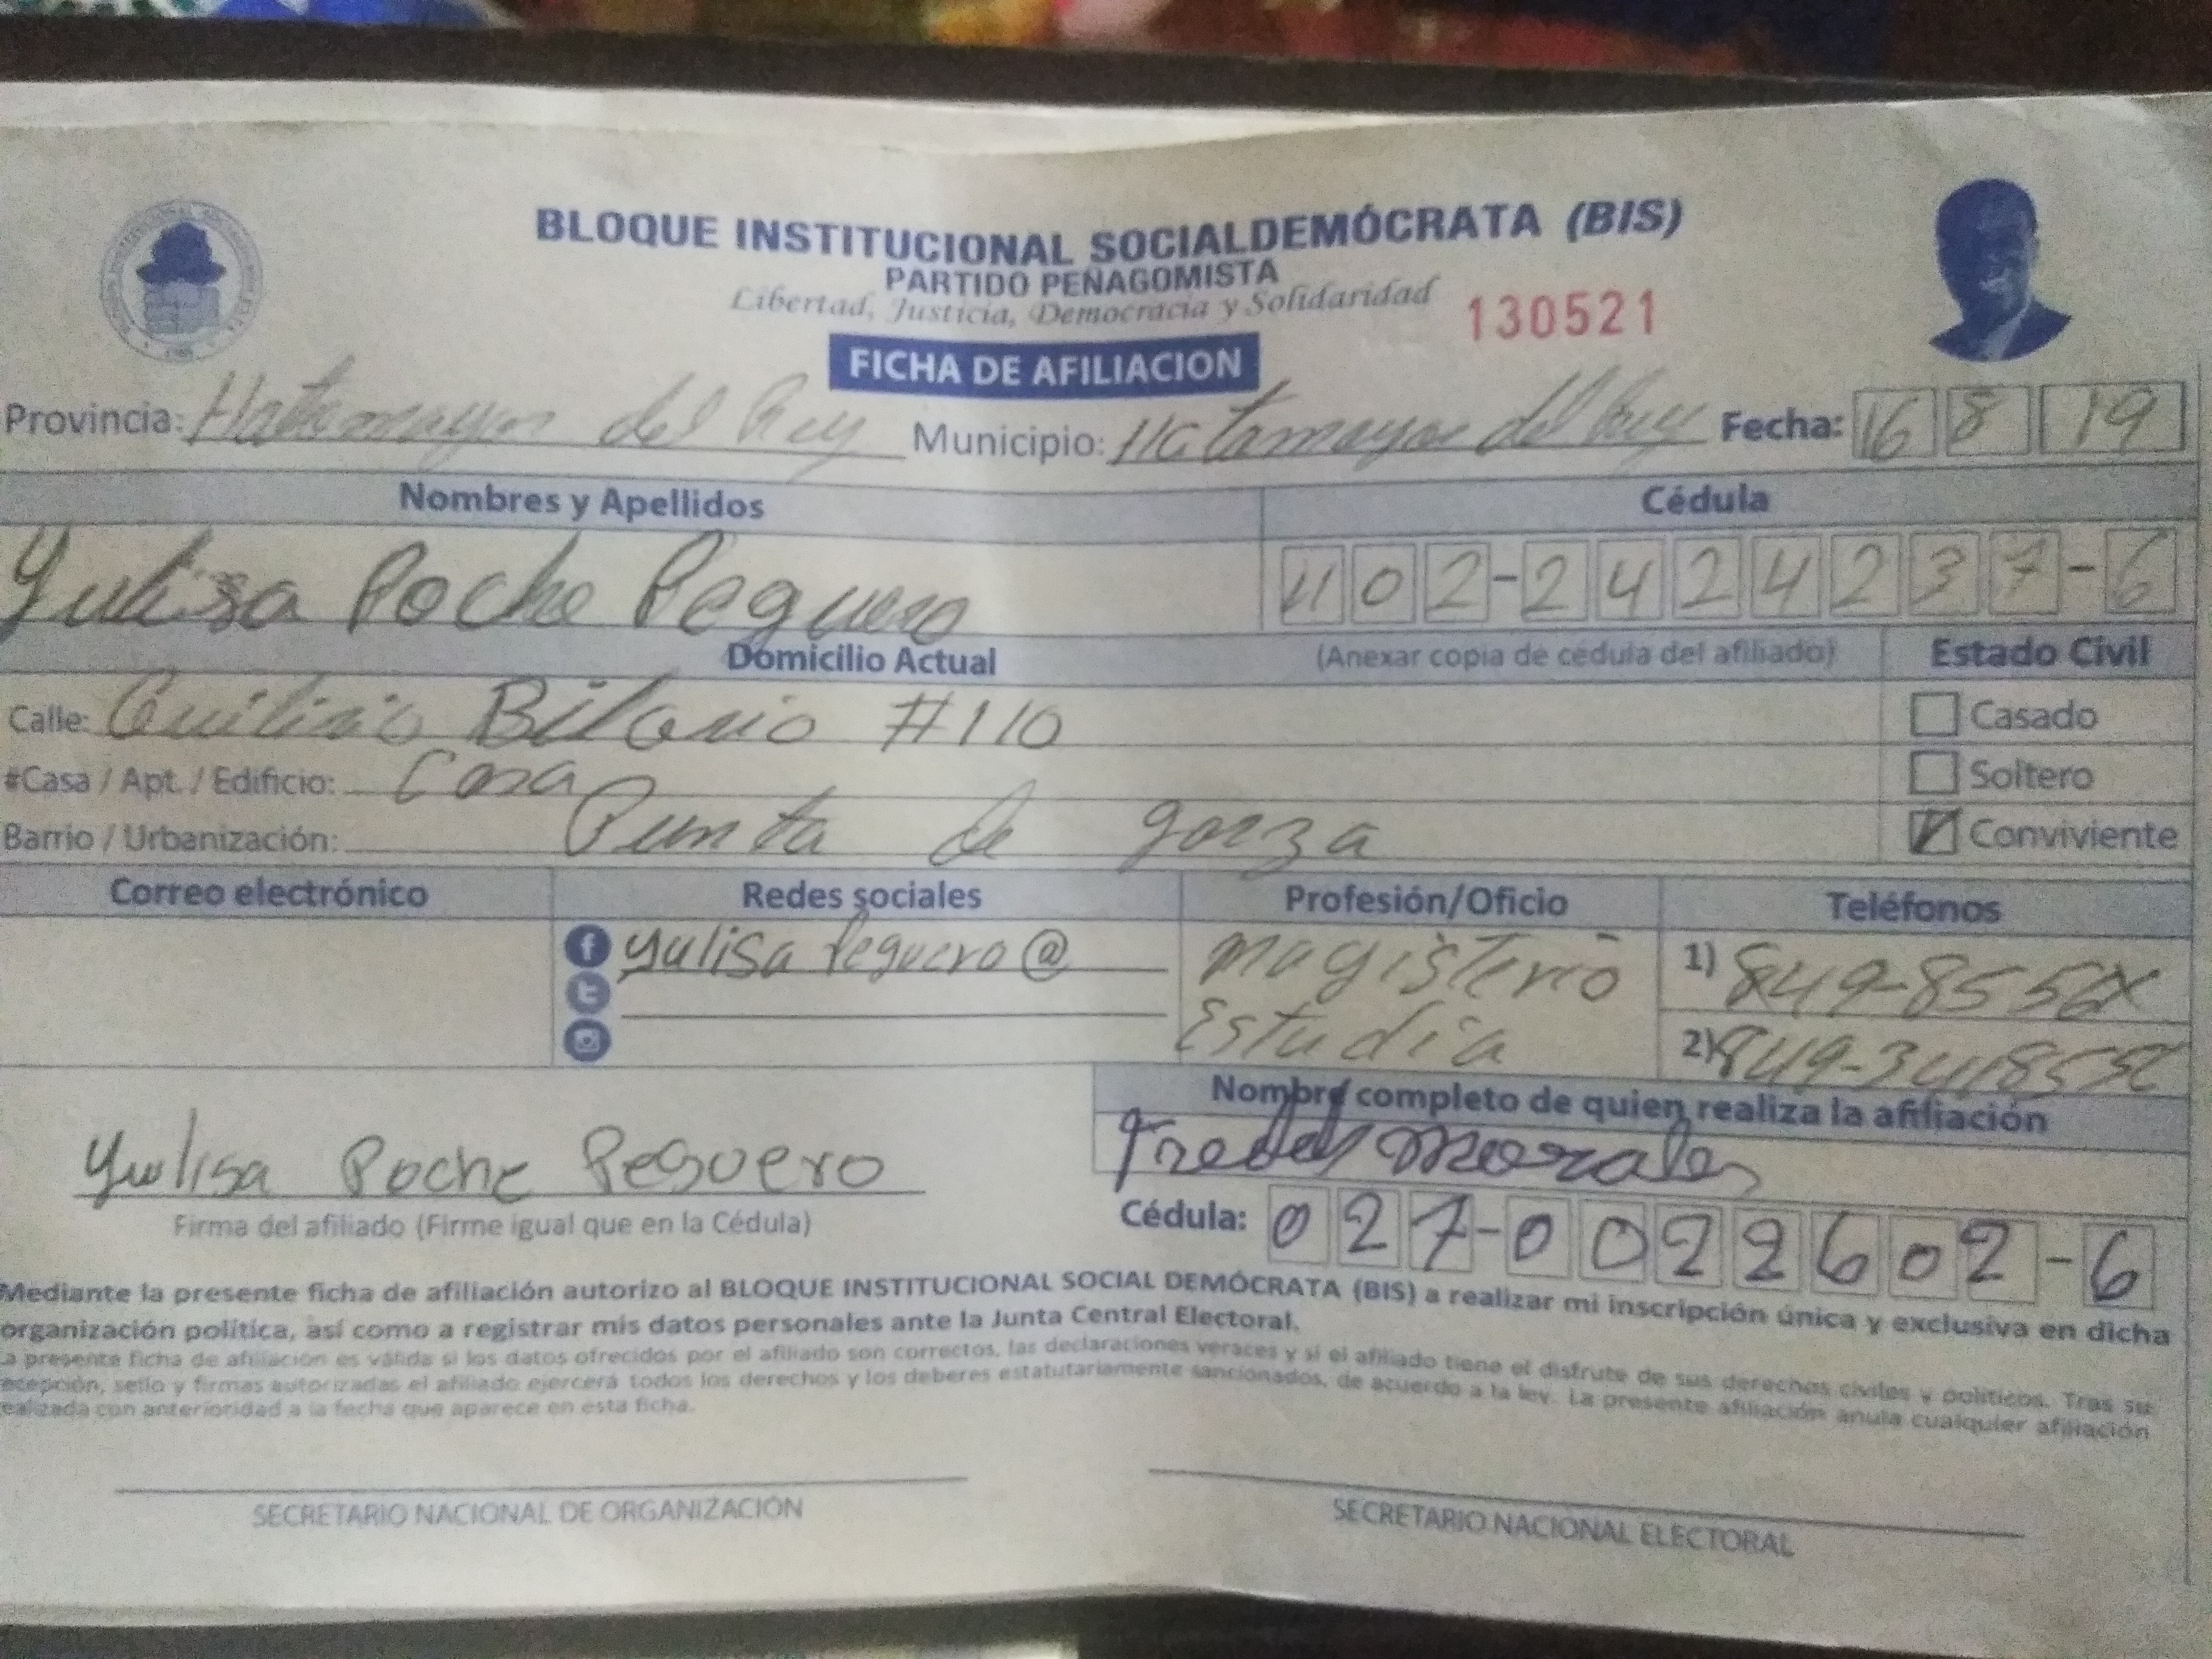 BLOQUE INSTITUCIONAL SOCIALDEMÓCRATA (BIS)
PARTIDO PEÑAGOMISTA
Libertad, Justicia, Democracia y Solidaridad
130521
FICHA DE AFILIACION
Provincia: Hatomayor del Rey Municipio: Hatamayor del Rey Fecha: 16 8 19
Nombres y Apellidos Cédula
Yulisa Poche Peguero 402-2424237-6
Domicilio Actual (Anexar copia de cédula del afiliado) Estado Civil
Calle: #110 Casado
#Casa / Apt. / Edificio: Casa Soltero
Barrio / Urbanización: Punta de garza Conviviente
Correo electrónico Redes sociales Profesión/Oficio Teléfonos
yulisa Peguero @ Magisterio 1) 849-855
Estudia 2) 849-341855
Nombre completo de quien realiza la afiliación
Morales
yulisa Poche Peguero
Firma del afiliado (Firme igual que en la Cédula) Cédula: 027-0022602-6
Mediante la presente ficha de afiliación autorizo al BLOQUE INSTITUCIONAL SOCIAL DEMÓCRATA (BIS) a realizar mi inscripción única y exclusiva en dicha
organización política, así como a registrar mis datos personales ante la Junta Central Electoral.
La presente ficha de afiliación es válida si los datos ofrecidos por el afiliado son correctos, las declaraciones veraces y si el afiliado tiene el disfrute de sus derechos civiles y políticos. Tras su
recepción, sello y firmas autorizadas el afiliado ejercerá todos los derechos y los deberes estatutariamente sancionados, de acuerdo a la ley. La presente afiliación anula cualquier afiliación
realizada con anterioridad a la fecha que aparece en esta ficha.
SECRETARIO NACIONAL DE ORGANIZACIÓN SECRETARIO NACIONAL ELECTORAL